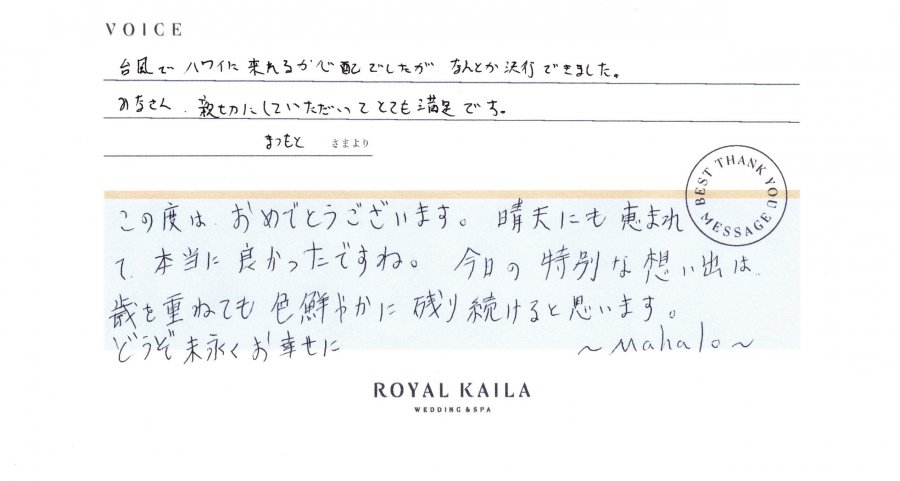 VOICE
台風で ハワイに来れるか心配でしたが なんとか決行できました。
みなさん、親切にしていただいってとても満足です。
まつもと さまより
BEST THANK YOU MESSAGE
この度は、おめでとうございます。晴天にも恵まれ
て、本当に良かったですね。今日の特別な想い出は、
歳を重ねても色鮮やかに残り続けると思います。
どうぞ末永くお幸せに ～Mahalo～
ROYAL KAILA
WEDDING & SPA